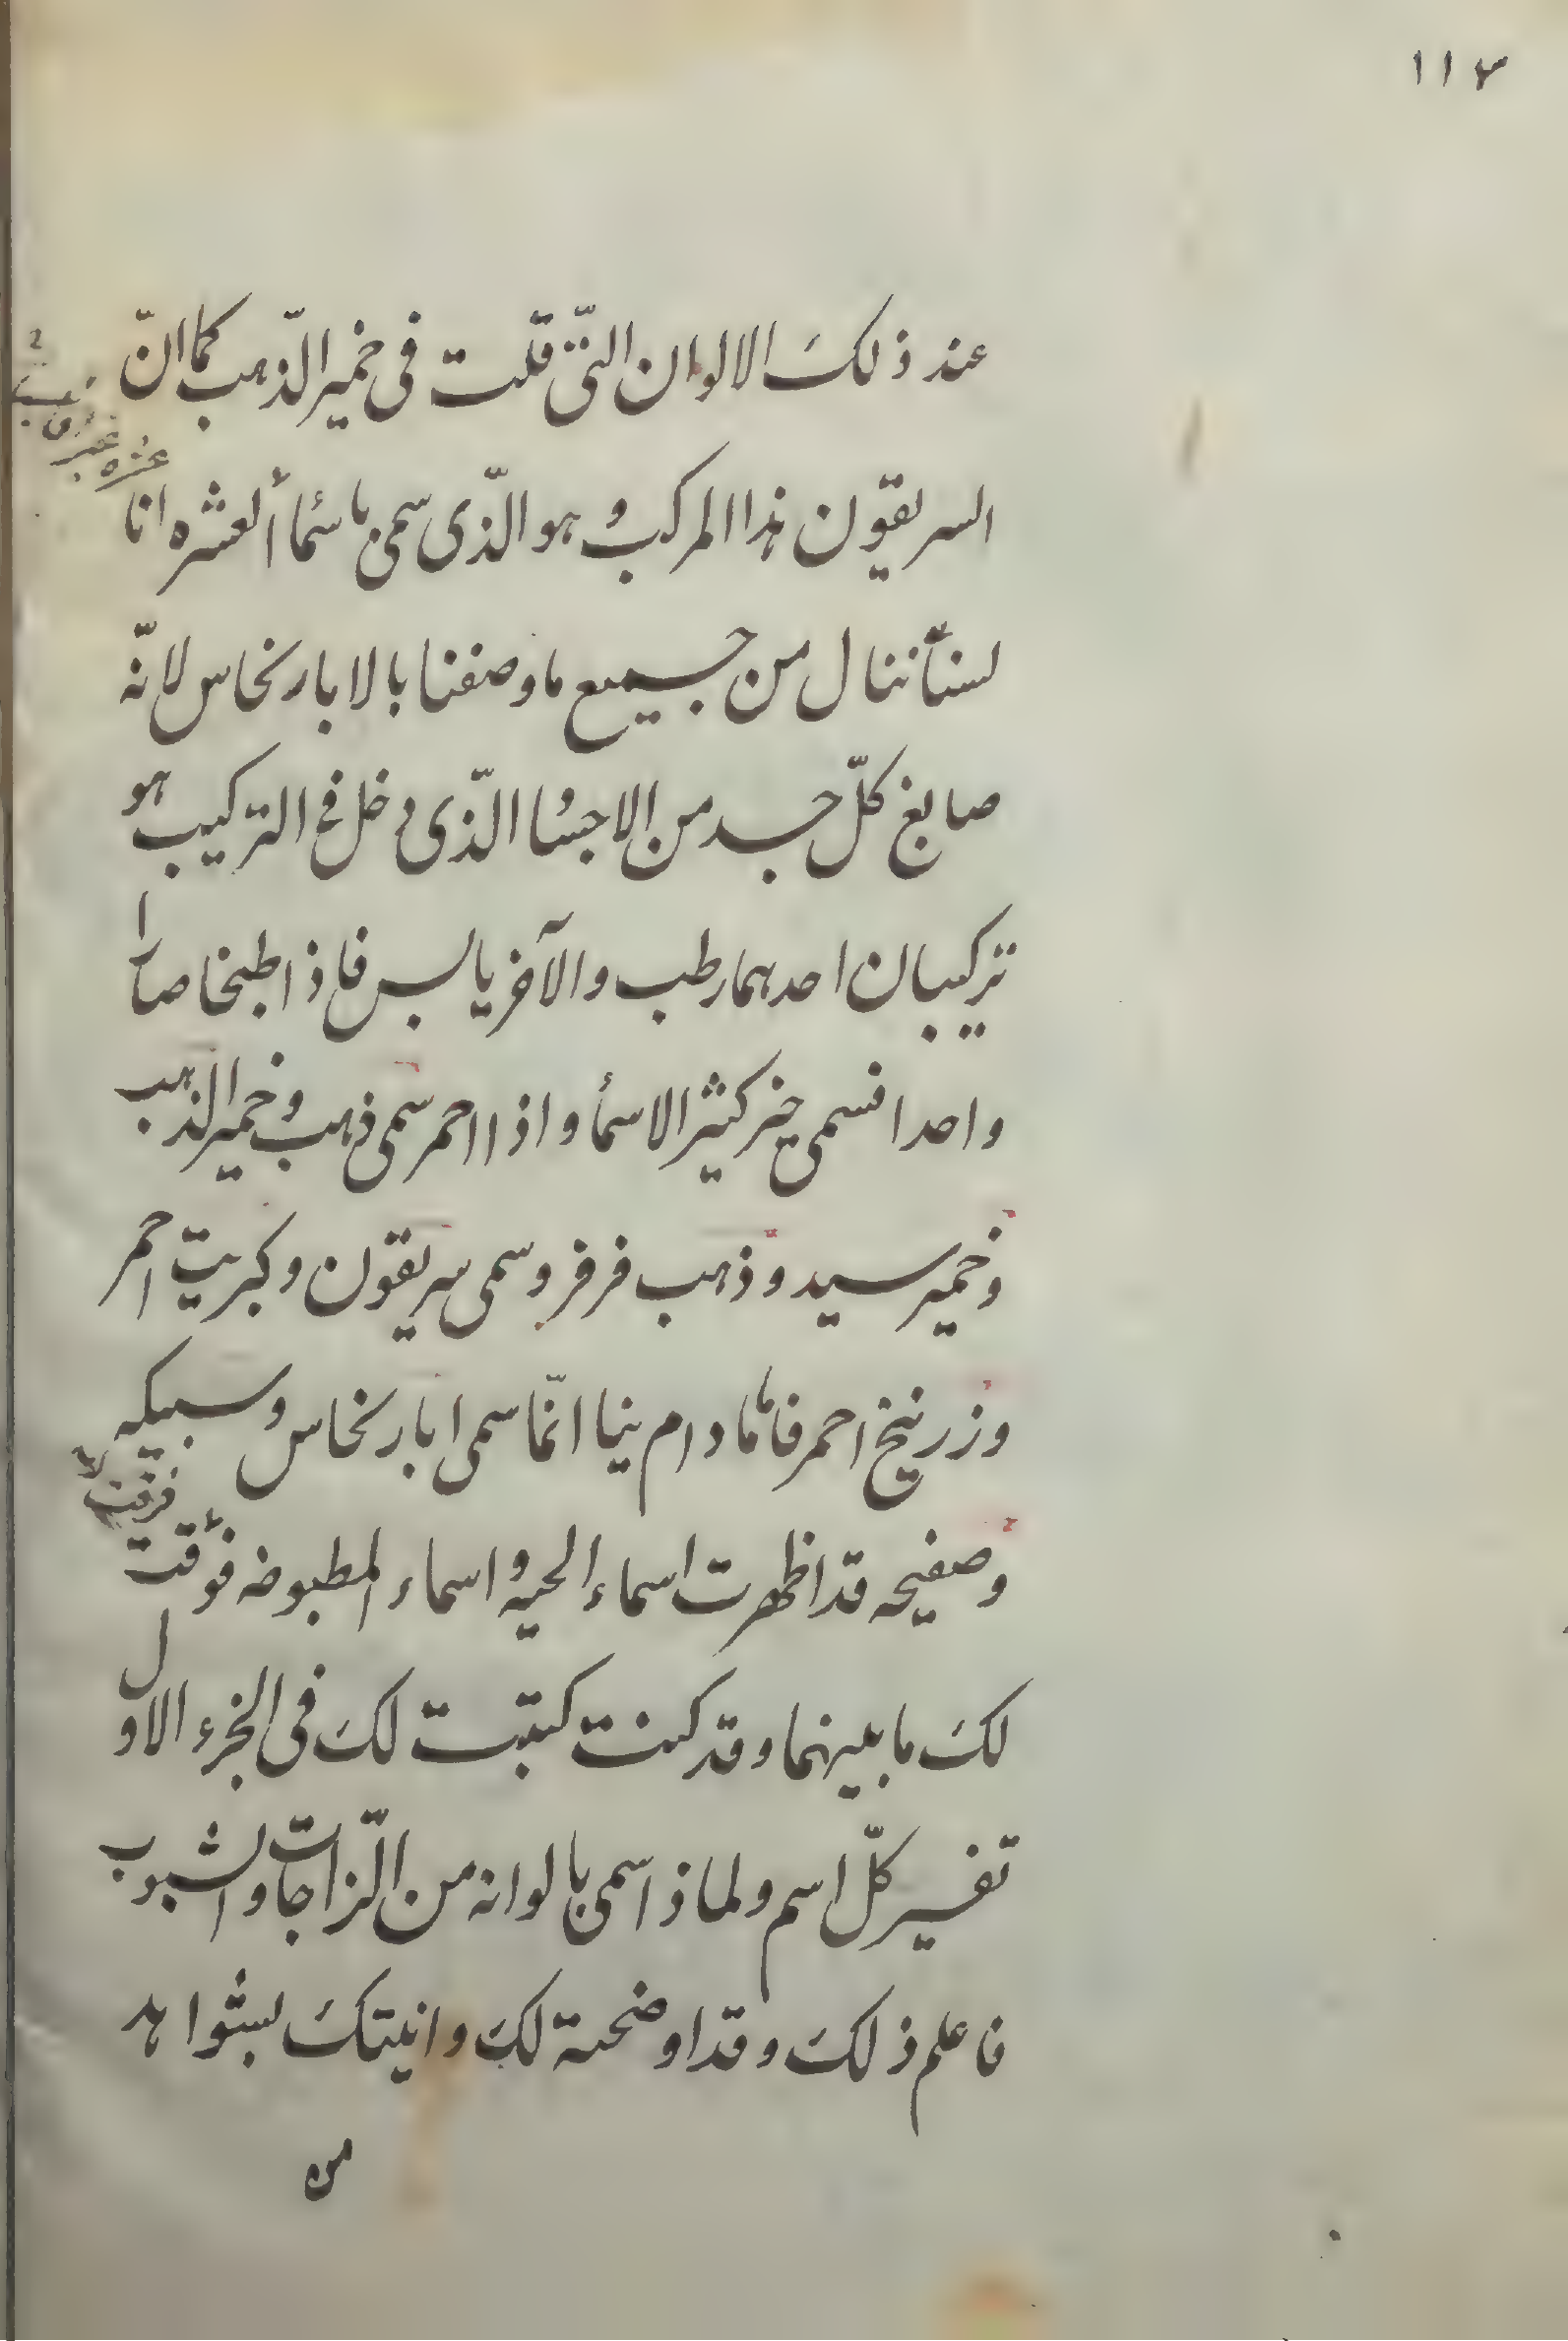 ١١٧
عند ذلک الالوان التّی قلت فی خمیر الذّهب کما انّ
السریقون هذا المرکب و هو الّذی سمی باسمأ العشره انا
لسنا ننال من جمیع ما وصفنا بالابار نحاس لانّه
صابغ کلّ جسد من الاجسا الّذی دخل فی الترکیب هو
ترکیبان احدهما رطب والآخر یابس فاذا طبخا صارا
واحدا فسمی خیر کثیر الاسمأ و اذا احمر سمی ذهب و خمیر الذهب
و خمیر سید و ذهب فرفر و سمی سریقون و کبریت احمر
و زرنیخ احمر فاما مادام نیا انّما سمی ابار نحاس و سبیکه
و صفیحه قد اظهرت اسماء الحیه و اسماء المطبوخه فوقت
فرقت
لک ما بینهما و قد کنت کتبت لک فی الجزء الاول
تفسیر کلّ اسم و لماذا سمی بالوانه من الّزاجات و الشبوب
فاعلم ذلک و قد اوضحته لک و اتیتک بشواهد
من